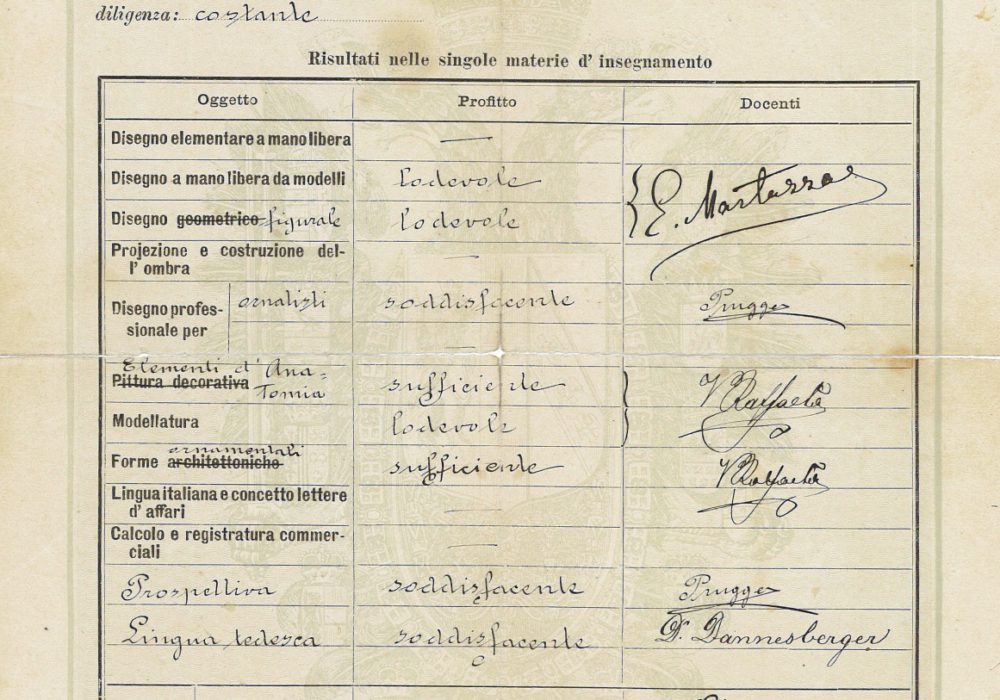 diligenza: costante
Risultati nelle singole materie d' insegnamento
Oggetto Profitto Docenti
Disegno elementare a mano libera —
Disegno a mano libera da modelli lodevole
E. Martuzza
Disegno geometrico figurale lodevole
Projezione e costruzione del- —
l' ombra
Disegno profes- ornalisti soddisfacente Prugger
sionale per —
Elementi d' Ana-
Pittura decorativa tomia sufficiente V Raffaeli
Modellatura lodevole
ornamentali
Forme architettoniche sufficiente V Raffaeli
Lingua italiana e concetto lettere —
d' affari
Calcolo e registratura commer- —
ciali
Prospettiva soddisfacente Prugger
Lingua tedesca soddisfacente Dr. Dannesberger